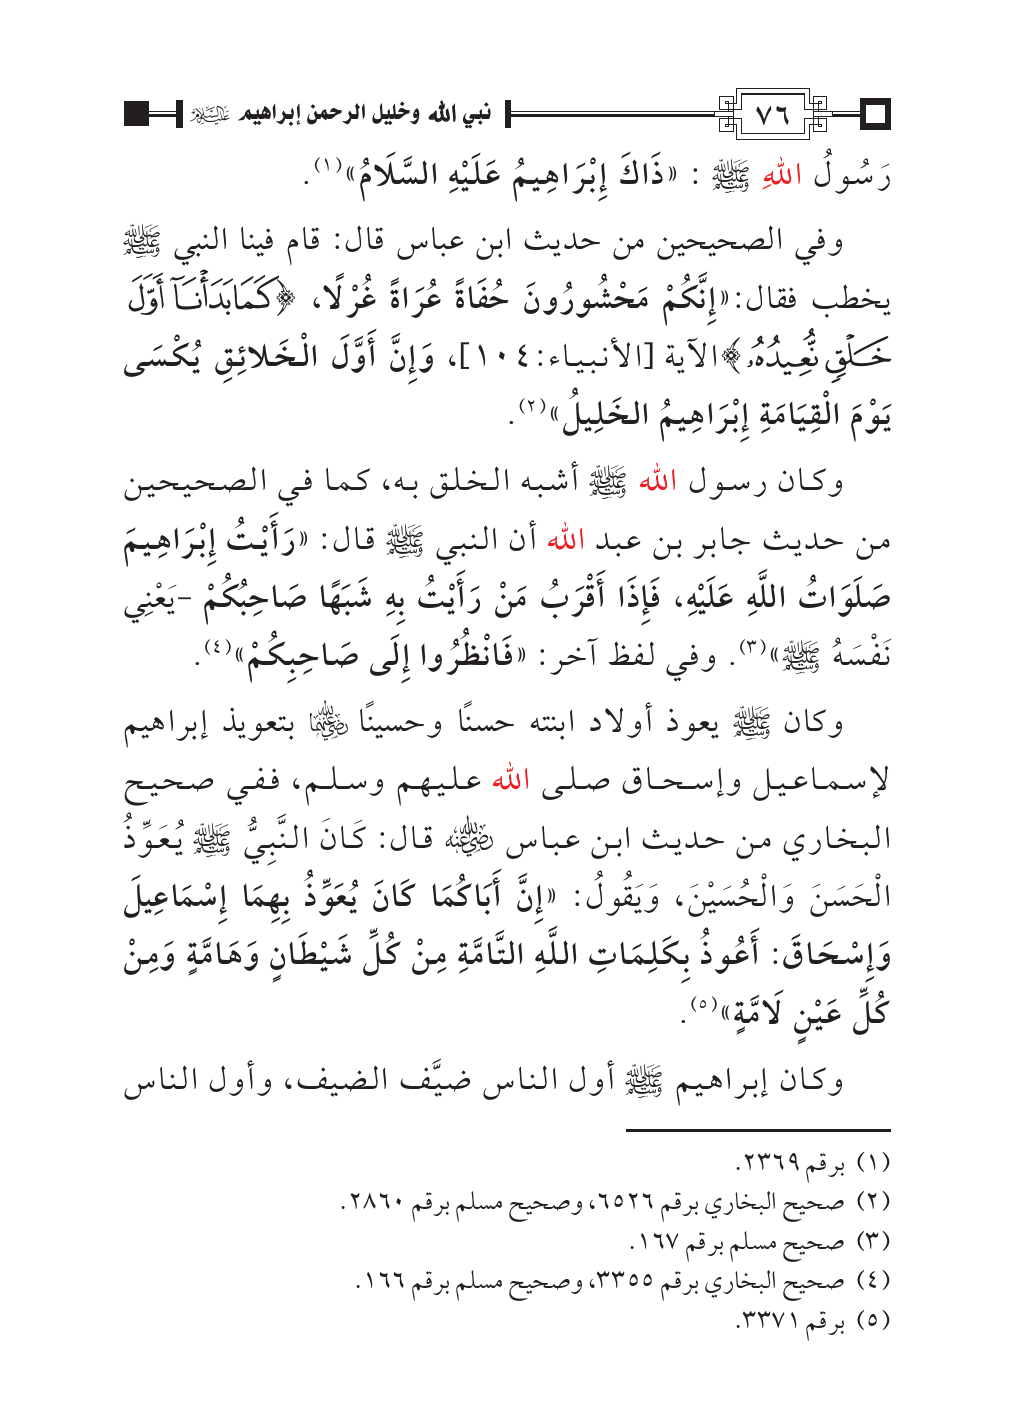 ٧٦ نبي الله وخليل الرحمن إبراهيم عليه السلام
رَسُولُ اللهِ ﷺ : «ذَاكَ إِبْرَاهِيمُ عَلَيْهِ السَّلَامُ»(١).
وفي الصحيحين من حديث ابن عباس قال: قام فينا النبي ﷺ
يخطب فقال:«إِنَّكُمْ مَحْشُورُونَ حُفَاةً عُرَاةً غُرْلًا، ﴿كَمَا بَدَأْنَآ أَوَّلَ
خَلْقٍ نُّعِيدُهُۥ﴾الآية [الأنبياء:١٠٤]، وَإِنَّ أَوَّلَ الْخَلائِقِ يُكْسَى
يَوْمَ الْقِيَامَةِ إِبْرَاهِيمُ الخَلِيلُ»(٢).
وكان رسول الله ﷺ أشبه الخلق به، كما في الصحيحين
من حديث جابر بن عبد الله أن النبي ﷺ قال: «رَأَيْتُ إِبْرَاهِيمَ
صَلَوَاتُ اللَّهِ عَلَيْهِ، فَإِذَا أَقْرَبُ مَنْ رَأَيْتُ بِهِ شَبَهًا صَاحِبُكُمْ -يَعْنِي
نَفْسَهُ ﷺ»(٣). وفي لفظ آخر: «فَانْظُرُوا إِلَى صَاحِبِكُمْ»(٤).
وكان ﷺ يعوذ أولاد ابنته حسنًا وحسينًا رضي الله عنهما بتعويذ إبراهيم
لإسماعيل وإسحاق صلى الله عليهم وسلم، ففي صحيح
البخاري من حديث ابن عباس رضي الله عنه قال: كَانَ النَّبِيُّ ﷺ يُعَوِّذُ
الْحَسَنَ وَالْحُسَيْنَ، وَيَقُولُ: «إِنَّ أَبَاكُمَا كَانَ يُعَوِّذُ بِهِمَا إِسْمَاعِيلَ
وَإِسْحَاقَ: أَعُوذُ بِكَلِمَاتِ اللَّهِ التَّامَّةِ مِنْ كُلِّ شَيْطَانٍ وَهَامَّةٍ وَمِنْ
كُلِّ عَيْنٍ لَامَّةٍ»(٥).
وكان إبراهيم ﷺ أول الناس ضيَّف الضيف، وأول الناس
(١) برقم ٢٣٦٩.
(٢) صحيح البخاري برقم ٦٥٢٦، وصحيح مسلم برقم ٢٨٦٠.
(٣) صحيح مسلم برقم ١٦٧.
(٤) صحيح البخاري برقم ٣٣٥٥، وصحيح مسلم برقم ١٦٦.
(٥) برقم ٣٣٧١.